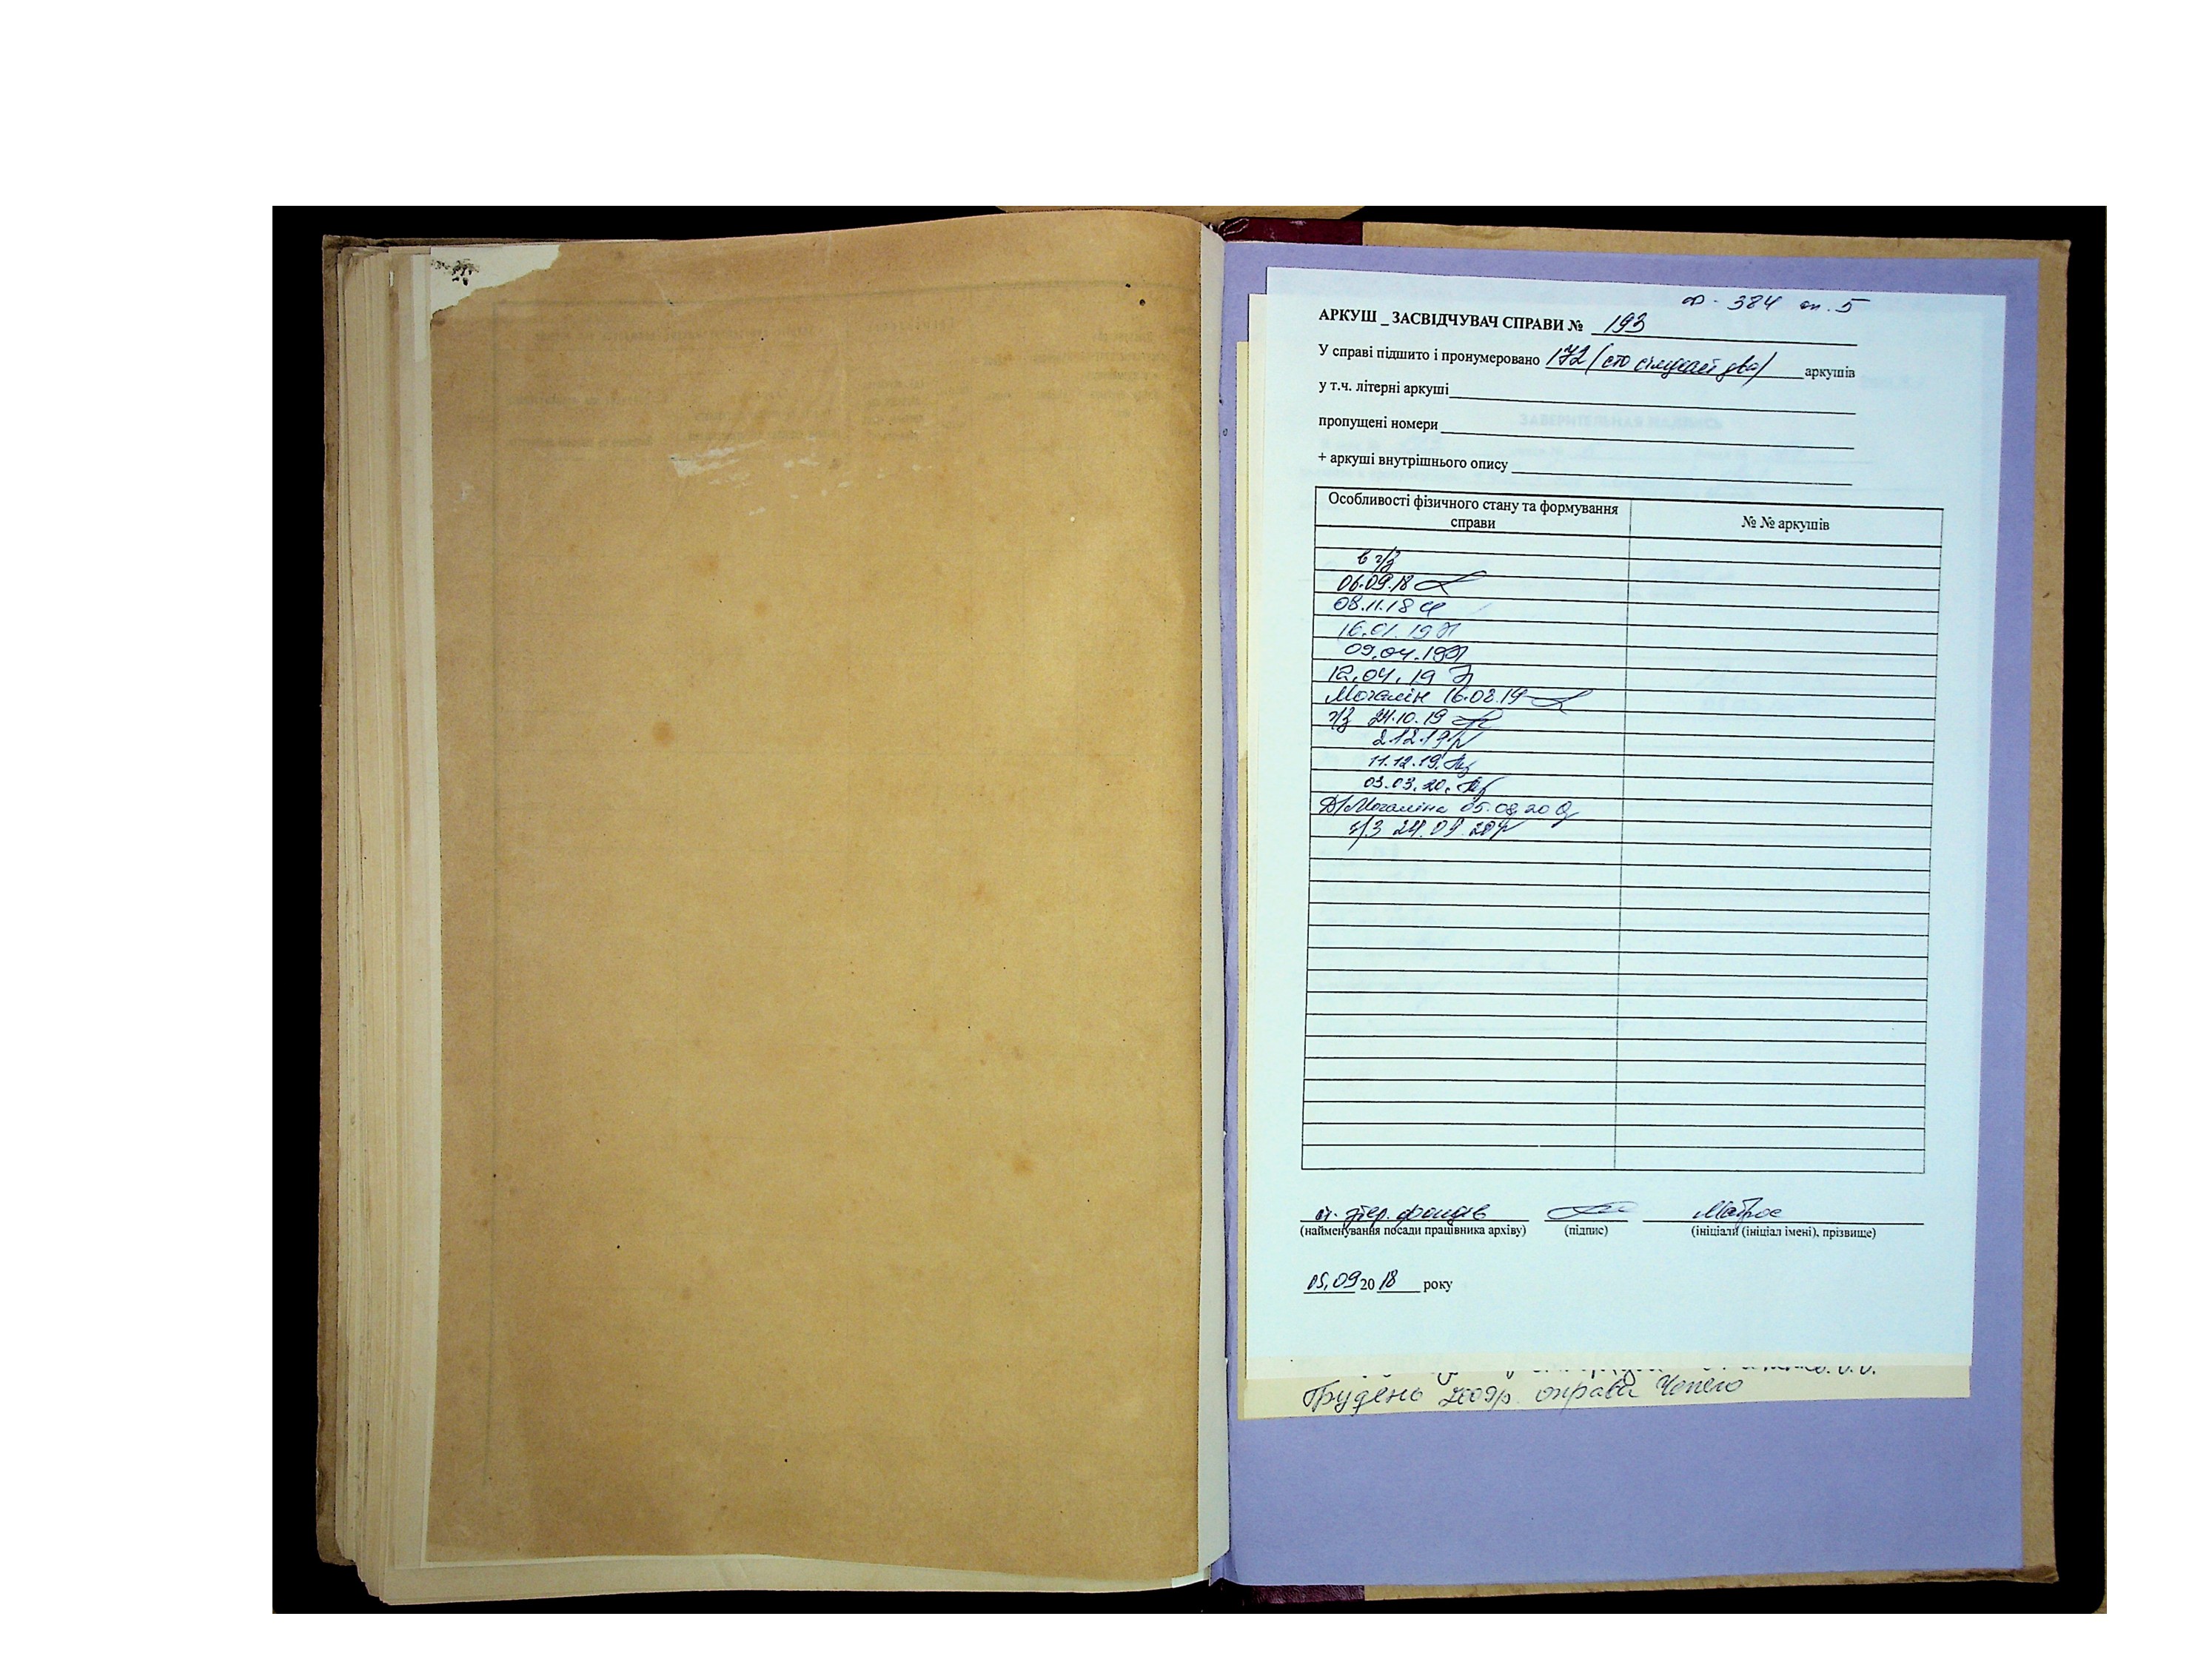 ф. 384 оп. 5
АРКУШ _ ЗАСВІДЧУВАЧ СПРАВИ № 193
У справі підшито і пронумеровано 172 (сто сімдесят два) аркушів
у т.ч. літерні аркуші
пропущені номери
+ аркуші внутрішнього опису
Особливості фізичного стану та формування справи
№ № аркушів
в ч/з
06.09.18
08.11.18
16.01.19
09.04.19
12.04.19
Мочалін 16.08.19
ч/з 24.10.19
2.12.19
11.12.19
03.03.20
Мочаліна 05.08.20
ч/з 24.09.20
ст. фондів
Матрос
(найменування посади працівника архіву) (підпис) (ініціали (ініціал імені), прізвище)
05.09 2018 року
Грудень 2009р. оправа
ЗАВЕРИТЕЛЬНАЯ НАДПИСЬ